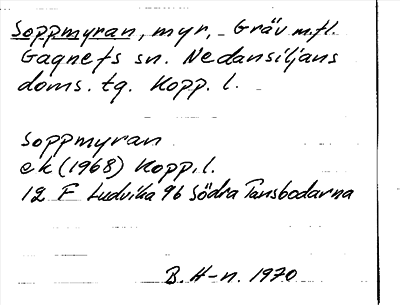 Soppmyran, myr, Gräv m.fl.
Gagnefs sn. Nedansiljans
doms. tg. Kopp. l.
Soppmyran
ek (1968) Kopp. l.
12 F Ludvika 9b Södra Tansbodarna
B. H-n. 1970